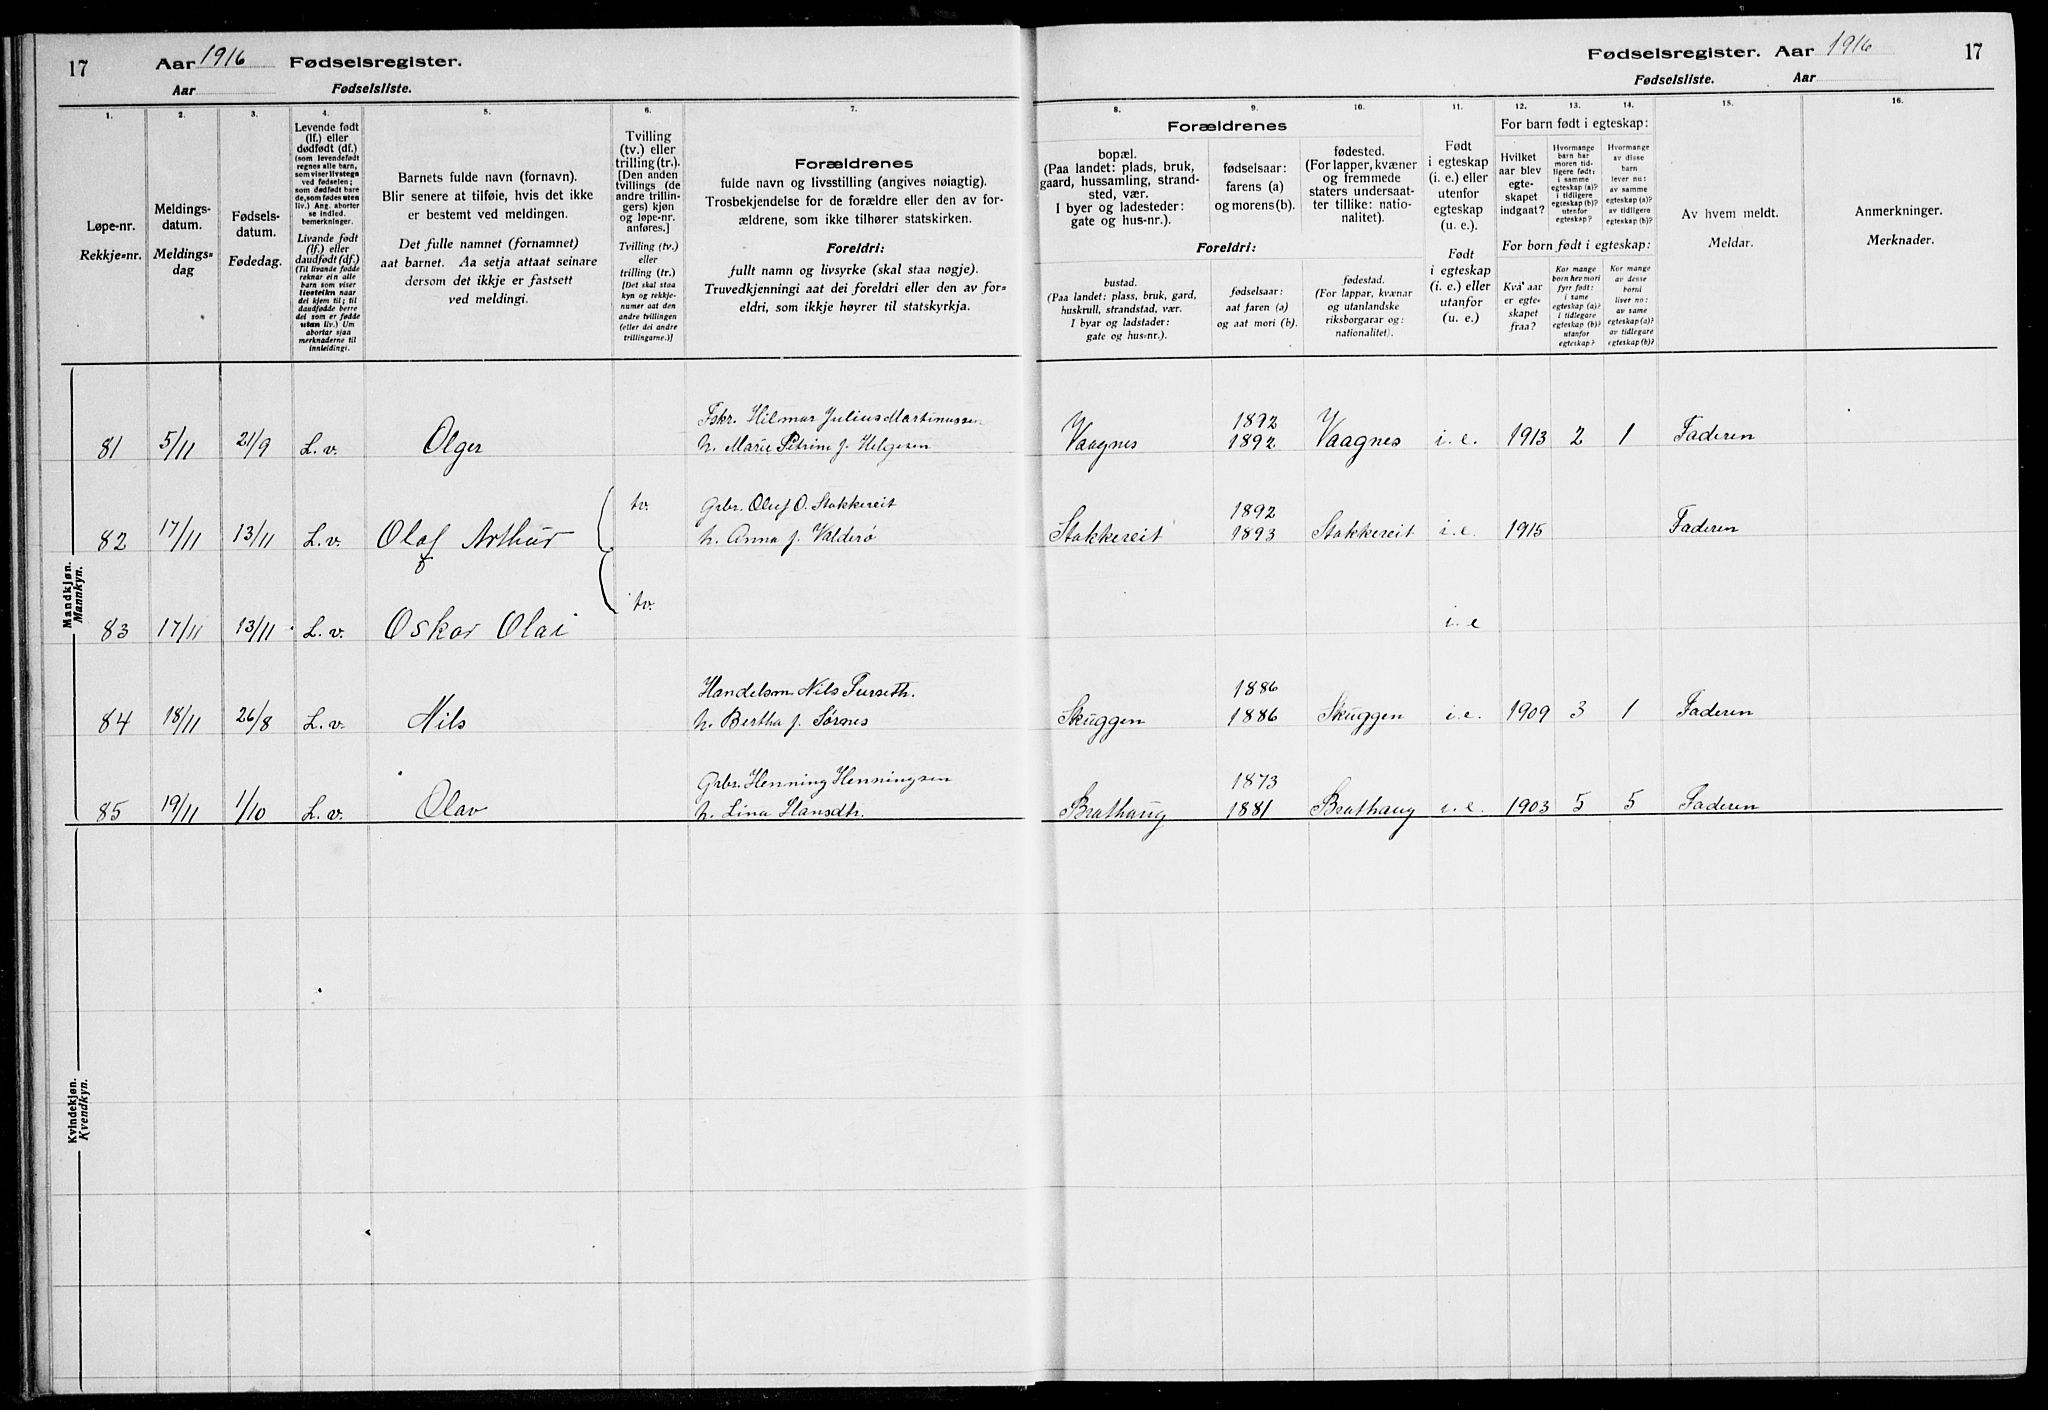 17 Aar 1916 Fødselsregister.
Aar Fødselsliste.
Fødselsregister. Aar 1916 17
Fødselsliste. Aar
1. 2. 3. 4. 5. 6. 7.
8. 9. 10. 11. 12. 13. 14. 15. 16.
Løpe-nr.
Rekkje=nr.
Meldings-
datum.
Meldings=
dag
Fødsels-
datum.
Fødedag.
Levende født
(lf.) eller
dødfødt (df.)
(som levendefødt
regnes alle barn,
som viser livstegn
ved fødselen;
som dødfødt bare
de, som fødes uten
liv.) Ang. aborter
se indled.
bemerkninger.
Livande født
(lf.) eller
daudfødt (df.)
(Til livande fødde
reknar ein alle
barn som viser
livsteikn naar
dei kjem til; til
daudfødde berre
dei som er fødde
utan liv.) Um
abortar sjaa
merknaderne til
innleidingi.
Barnets fulde navn (fornavn).
Blir senere at tilføie, hvis det ikke
er bestemt ved meldingen.
Det fulle namnet (fornamnet)
aat barnet. Aa setja attaat seinare
dersom det ikkje er fastsett
ved meldingi.
Tvilling
(tv.) eller
trilling (tr.).
[Den anden
tvillings (de
andre trillin-
gers) kjøn
og løpe-nr.
anføres.]
Tvilling (tv.)
eller
trilling (tr.)
[Det skal staa
kyn og rekkje-
numer aat den
andre tvillingen
(eller dei andre
trillingarne.)]
Forældrenes
fulde navn og livsstilling (angives nøiagtig).
Trosbekjendelse for de forældre eller den av for-
ældrene, som ikke tilhører statskirken.
Foreldri:
fullt namn og livsyrke (skal staa nøgje).
Truvedkjenningi aat dei foreldri eller den av for=
eldri, som ikkje høyrer til statskyrkja.
Forældrenes
bopæl.
(Paa landet: plads, bruk,
gaard, hussamling, strand-
sted, vær.
I byer og ladesteder:
gate og hus-nr.).
fødselsaar:
farens (a)
og morens (b).
fødested.
(For lapper, kvæner
og fremmede
staters undersaat-
ter tillike: natio-
nalitet).
Foreldri:
bustad.
(Paa landet: plass, bruk, gard,
huskrull, strandstad, vær.
I byar og ladstader:
gate og hus=nr.).
fødselsaar:
aat faren (a)
og aat mori (b).
fødestad.
(For lappar, kvænar
og utanlandske
riksborgarar og:
nationalitet).
Født
i egteskap
(i. e.) eller
utenfor
egteskap
(u. e.).
Født
i egteskap
(i. e.) eller
utanfor
egteskap
(u. e.).
For barn født i egteskap:
Hvilket
aar blev
egte-
skapet
indgaat?
Hvormange
barn har
moren tid-
ligere født:
i samme
egteskap (a)?
i tidligere
egteskap (b)?
utenfor
egteskap?
Hvormange
av disse
barn
lever nu:
av samme
egteskap (a)?
av tidligere
egteskap (b)?
For born født i egteskap:
Kva aar
er egte-
skapet
fraa?
Kor mange
born hev mori
fyrr født:
i same
egteskap (a)?
i tidlegare
egteskap (b)?
utanfor
egteskap?
Kor mange
av desse
borni
liver no:
av same
egteskap (a)?
av tidlegare
egteskap (b)?
Av hvem meldt.
Meldar.
Anmerkninger.
Merknader.
Mandkjøn.
Mannkyn.
Fskr. Hilmar Julius Martinussen 1892
81 5/11 21/9 L. v. Olger h. Marie Petrine f. Helgesen Vaagnes 1892 Vaagnes i. e. 1913 2 1 Faderen
tv. Grbr. Oluf O. Stokkereit 1892
82 17/11 13/11 L. v. Olaf Arthur h. Anna f. Valderø Stokkereit 1893 Stokkereit i. e. 1915 Faderen
tv.
83 17/11 13/11 L. v. Oskar Olai i. e
Handelsm. Nils Furseth. 1886
84 18/11 26/8 L. v. Nils h. Bertha f. Sørnes Skuggen 1886 Skuggen i. e. 1909 3 1 Faderen
Grbr. Henning Henningsen 1873
85 19/11 1/10 L. v. Olav h. Lina Hansdtr. Brathaug 1881 Brathaug i. e. 1903 5 5 Faderen
Kvindekjøn.
Kvendkyn.